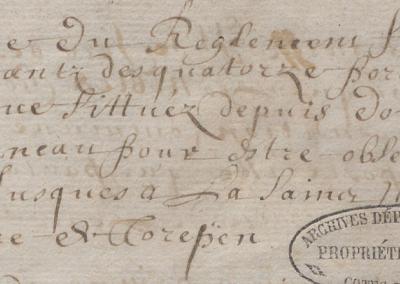 e du Reglement
antz desquatorze por
ue sittuéz depuis
neau pour estre obse
Jusques a La Sainct
re et
ARCHIVES DÉP
PROPRIÉTÉ
COTES